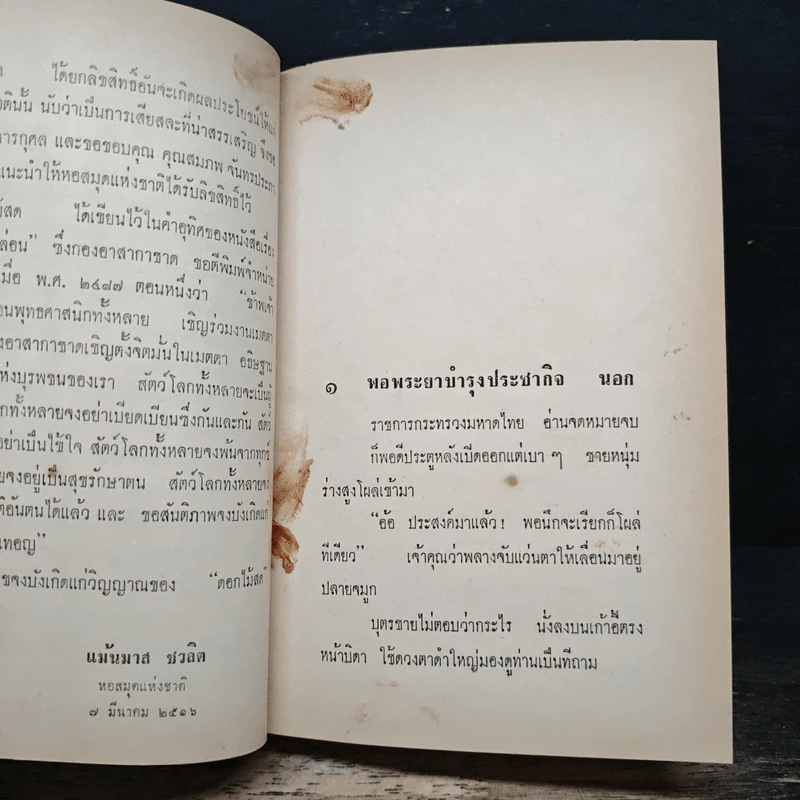 ได้ยกลิขสิทธิ์อันจะเกิดผลประโยชน์ให้แก่
ตินั้น นับว่าเป็นการเสียสละที่น่าสรรเสริญ จึงขอ
ารกุศล และขอขอบคุณ คุณสมภพ จันทรประภา
แนะนำให้หอสมุดแห่งชาติได้รับลิขสิทธิ์ไว้
ม้สด ได้เขียนไว้ในคำอุทิศของหนังสือเรื่อง
ล่อน” ซึ่งกองอาสากาชาด ขอตีพิมพ์จำหน่าย
มื่อ พ.ศ. ๒๔๘๗ ตอนหนึ่งว่า “ข้าพเจ้า
อนพุทธศาสนิกทั้งหลาย เชิญร่วมงานเมตตา
งอาสากาชาดเชิญตั้งจิตมั่นในเมตตา อธิษฐาน
ห่งบุรพชนของเรา สัตว์โลกทั้งหลายจะเป็นผู้
กทั้งหลายจงอย่าเบียดเบียนซึ่งกันและกัน สัตว์
อย่าเป็นไข้ใจ สัตว์โลกทั้งหลายจงพ้นจากทุกข์
ยจงอยู่เป็นสุขรักษาตน สัตว์โลกทั้งหลายจง
ติอันตนได้แล้ว และ ขอสันติภาพจงบังเกิดแก่
เทอญ”
ขจงบังเกิดแก่วิญญาณของ “ดอกไม้สด”
แม้นมาส ชวลิต
หอสมุดแห่งชาติ
๗ มีนาคม ๒๕๑๖
๑ พอพระยาบำรุงประชากิจ นอก
ราชการกระทรวงมหาดไทย อ่านจดหมายจบ
ก็พอดีประตูหลังเปิดออกแต่เบา ๆ ชายหนุ่ม
ร่างสูงโผล่เข้ามา
“อ้อ ประสงค์มาแล้ว! พอนึกจะเรียกก็โผล่
ทีเดียว” เจ้าคุณว่าพลางจับแว่นตาให้เลื่อนมาอยู่
ปลายจมูก
บุตรชายไม่ตอบว่ากระไร นั่งลงบนเก้าอี้ตรง
หน้าบิดา ใช้ดวงตาดำใหญ่มองดูท่านเป็นทีถาม